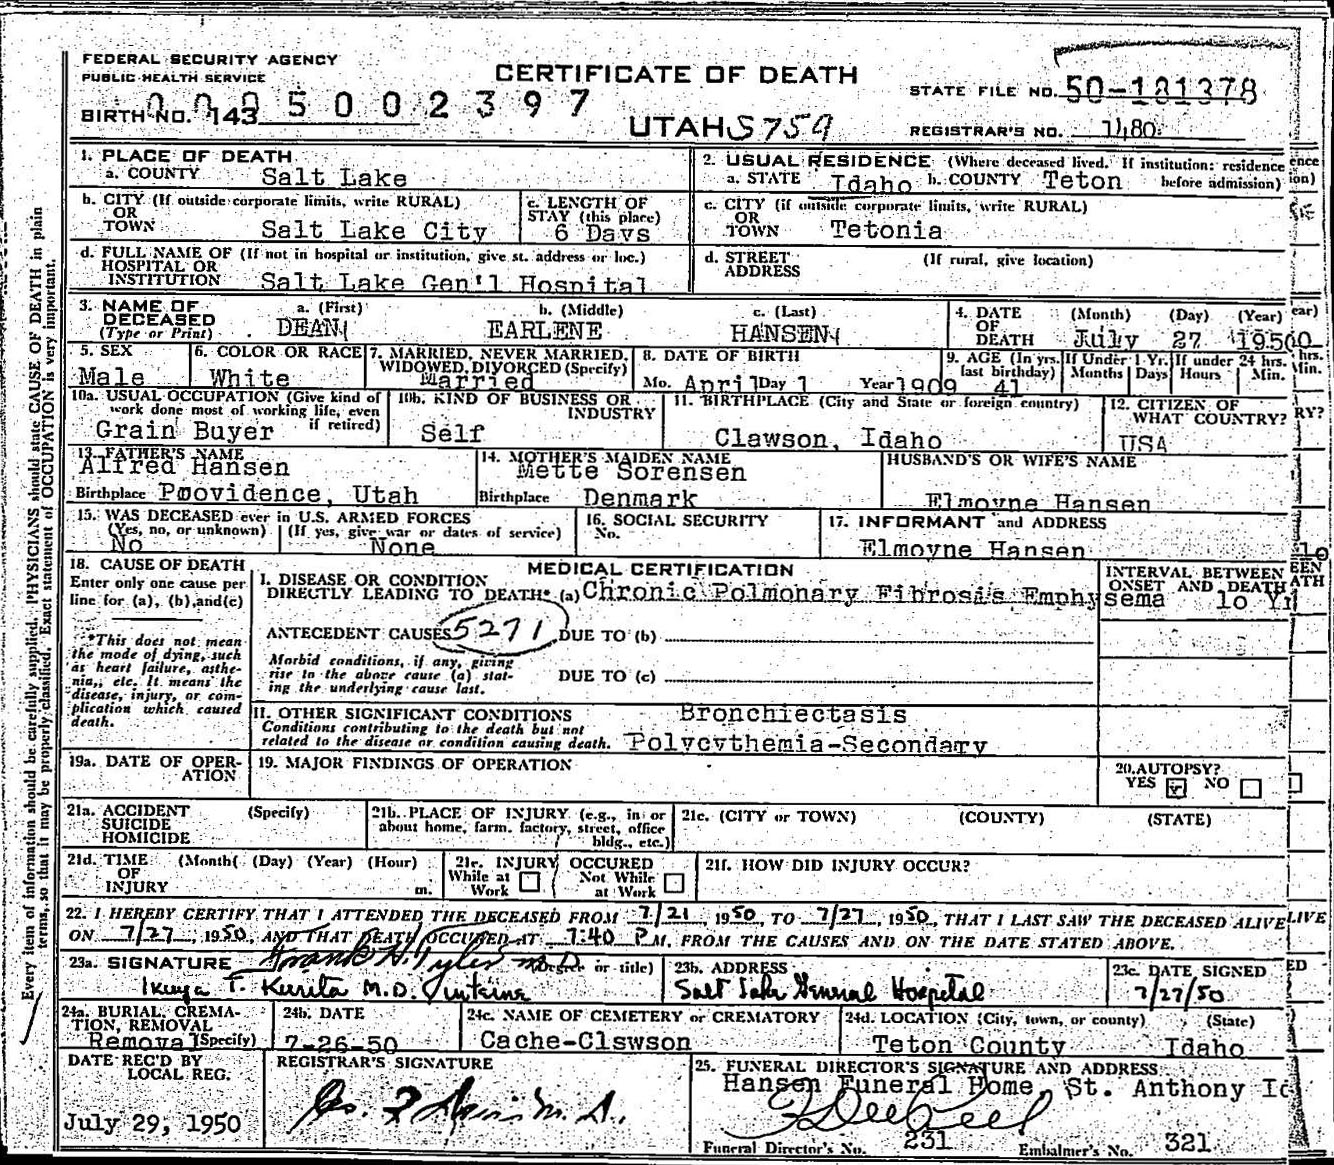 FEDERAL SECURITY AGENCY
PUBLIC HEALTH SERVICE
CERTIFICATE OF DEATH
STATE FILE NO. 50-181378
BIRTH NO. 143
0 0 0 5 0 0 2 3 9 7
UTAH S759
REGISTRAR'S NO. 1480
1. PLACE OF DEATH
a. COUNTY Salt Lake
2. USUAL RESIDENCE (Where deceased lived. If institution: residence before admission)
a. STATE Idaho b. COUNTY Teton
b. CITY (If outside corporate limits, write RURAL)
OR
TOWN Salt Lake City
c. LENGTH OF
STAY (this place)
6 Days
c. CITY (if outside corporate limits, write RURAL)
OR
TOWN Tetonia
d. FULL NAME OF (If not in hospital or institution, give st. address or loc.)
HOSPITAL OR
INSTITUTION Salt Lake Gen'l Hospital
d. STREET
ADDRESS
(If rural, give location)
3. NAME OF
DECEASED
(Type or Print)
a. (First)
DEAN
b. (Middle)
EARLENE
c. (Last)
HANSEN
4. DATE
OF
DEATH
(Month) (Day) (Year)
July 27 1950
5. SEX
Male
6. COLOR OR RACE
White
7. MARRIED, NEVER MARRIED,
WIDOWED, DIVORCED (Specify)
Married
8. DATE OF BIRTH
Mo. April Day 1 Year 1909
9. AGE (In yrs. last birthday)
41
If Under 1 Yr.
Months Days
If under 24 hrs.
Hours Min.
10a. USUAL OCCUPATION (Give kind of
work done most of working life, even
if retired)
Grain Buyer
10b. KIND OF BUSINESS OR
INDUSTRY
Self
11. BIRTHPLACE (City and State or foreign country)
Clawson, Idaho
12. CITIZEN OF
WHAT COUNTRY?
USA
13. FATHER'S NAME
Alfred Hansen
Birthplace Poovidence, Utah
14. MOTHER'S MAIDEN NAME
Mette Sorensen
Birthplace Denmark
HUSBAND'S OR WIFE'S NAME
Elmoyne Hansen
15. WAS DECEASED ever in U.S. ARMED FORCES
(Yes, no, or unknown) (If yes, give war or dates of service)
No None
16. SOCIAL SECURITY
No.
17. INFORMANT and ADDRESS
Elmoyne Hansen
18. CAUSE OF DEATH
Enter only one cause per
line for (a), (b), and (c)
*This does not mean
the mode of dying, such
as heart failure, asthe-
nia, etc. It means the
disease, injury, or com-
plication which caused
death.
MEDICAL CERTIFICATION
INTERVAL BETWEEN
ONSET AND DEATH
I. DISEASE OR CONDITION
DIRECTLY LEADING TO DEATH* (a) Chronic Polmonary Fibrosis Emphysema 10 Yr
ANTECEDENT CAUSES 5271 DUE TO (b)
Morbid conditions, if any, giving
rise to the above cause (a) stat-
ing the underlying cause last.
DUE TO (c)
II. OTHER SIGNIFICANT CONDITIONS
Conditions contributing to the death but not
related to the disease or condition causing death.
Bronchiectasis
Polycythemia-Secondary
19a. DATE OF OPER-
ATION
19. MAJOR FINDINGS OF OPERATION
20. AUTOPSY?
YES NO
21a. ACCIDENT
SUICIDE
HOMICIDE
(Specify)
21b. PLACE OF INJURY (e.g., in or
about home, farm, factory, street, office
bldg., etc.)
21c. (CITY or TOWN) (COUNTY) (STATE)
21d. TIME
OF
INJURY
(Month) (Day) (Year) (Hour)
m.
21e. INJURY OCCURED
While at
Work
Not While
at Work
21f. HOW DID INJURY OCCUR?
22. I HEREBY CERTIFY THAT I ATTENDED THE DECEASED FROM 7/21, 1950, TO 7/27, 1950, THAT I LAST SAW THE DECEASED ALIVE
ON 7/27, 1950, AND THAT DEATH OCCURED AT 7:40 P M. FROM THE CAUSES AND ON THE DATE STATED ABOVE.
23a. SIGNATURE (Degree or title)
Frank H. Tyler M.D.
Ikuya T. Kurita M.D. Interne
23b. ADDRESS
Salt Lake General Hospital
23c. DATE SIGNED
7/27/50
24a. BURIAL, CREMA-
TION, REMOVAL
(Specify)
Removal
24b. DATE
7-26-50
24c. NAME OF CEMETERY or CREMATORY
Cache-Clswson
24d. LOCATION (City, town, or county) (State)
Teton County Idaho
DATE REC'D BY
LOCAL REG.
July 29, 1950
REGISTRAR'S SIGNATURE
25. FUNERAL DIRECTOR'S SIGNATURE AND ADDRESS
Hansen Funeral Home, St. Anthony Id
Funeral Director's No. 231
Embalmer's No. 321
Every item of information should be carefully supplied. PHYSICIANS should state CAUSE OF DEATH in plain
terms, so that it may be properly classified. Exact statement of OCCUPATION is very important.